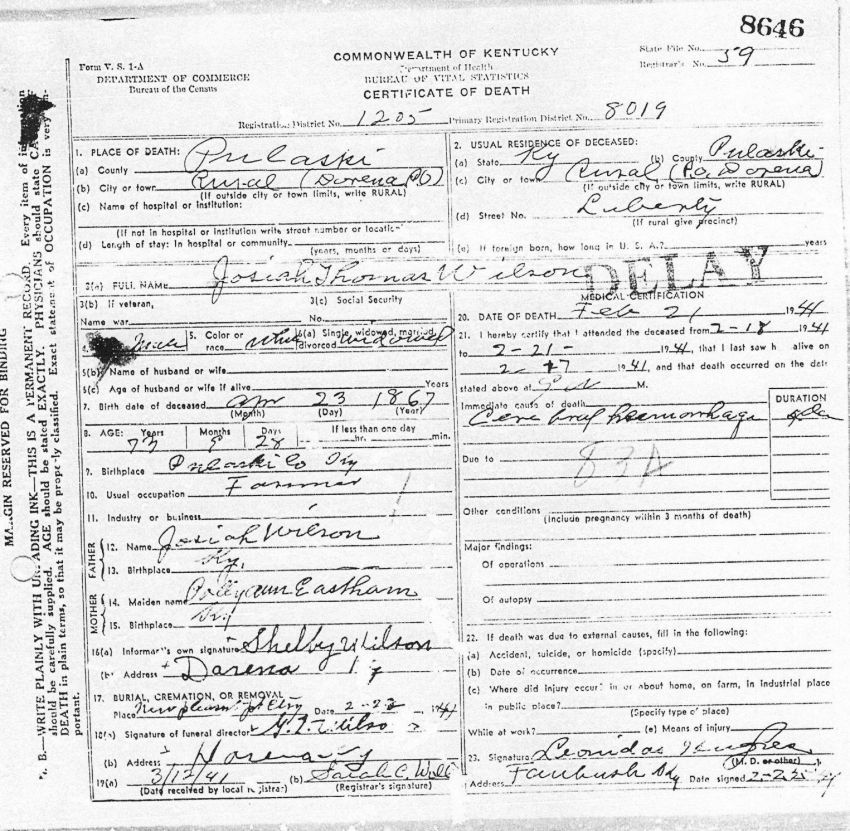 8646
Form V. S. 1-A
DEPARTMENT OF COMMERCE
Bureau of the Census
COMMONWEALTH OF KENTUCKY
Department of Health
BUREAU OF VITAL STATISTICS
CERTIFICATE OF DEATH
State File No.
Registrar's No. 59
Registration District No. 1205 Primary Registration District No. 8019
MARGIN RESERVED FOR BINDING
N. B.—WRITE PLAINLY WITH UNFADING INK—THIS IS A PERMANENT RECORD. Every item of information
should be carefully supplied. AGE should be stated EXACTLY. PHYSICIANS should state
DEATH in plain terms, so that it may be properly classified. Exact statement of OCCUPATION is very im-
portant.
1. PLACE OF DEATH:
(a) County Pulaski
(b) City or town Rural (Dorena P.O)
(If outside city or town limits, write RURAL)
(c) Name of hospital or institution:
(If not in hospital or institution write street number or location)
(d) Length of stay: In hospital or community
(years, months or days)
2. USUAL RESIDENCE OF DECEASED:
(a) State Ky (b) County Pulaski
(c) City or town Rural (Po Dorena)
(If outside city or town limits, write RURAL)
(d) Street No. Liberty
(If rural give precinct)
(e) If foreign born, how long in U. S. A.? years
3(a) FULL NAME Josiah Thomas Wilson
DELAY
3(b) If veteran,
Name war
3(c) Social Security
No.
5. Color or
race White
6(a) Single, widowed, married,
divorced widowed
6(b) Name of husband or wife
6(c) Age of husband or wife if alive Years
7. Birth date of deceased 23 1867
(Month) (Day) (Year)
8. AGE: Years Months Days If less than one day
73 9 28 hr. min.
9. Birthplace Pulaski Co Ky
10. Usual occupation Farmer
11. Industry or business
FATHER
12. Name Josiah Wilson
13. Birthplace Ky.
MOTHER
14. Maiden name Pollyann Eastham
15. Birthplace Ky
16(a) Informer's own signature Shelby Wilson
(b) Address Darena Ky
17. BURIAL, CREMATION, OR REMOVAL
Place Date 2-23 1941
18(a) Signature of funeral director
(b) Address
19(a) 3/12/41 (b) Sarah C.
(Date received by local registrar) (Registrar's signature)
MEDICAL CERTIFICATION
20. DATE OF DEATH Feb 21 1941
21. I hereby certify that I attended the deceased from 2-18 1941
to 2-21- 1941, that I last saw h alive on
1941, and that death occurred on the date
stated above at M.
Immediate cause of death DURATION
Cerebral hemorrhage
Due to
83A
Other conditions
(Include pregnancy within 3 months of death)
Major findings:
Of operations
Of autopsy
22. If death was due to external causes, fill in the following:
(a) Accident, suicide, or homicide (specify)
(b) Date of occurrence
(c) Where did injury occur? in or about home, on farm, in industrial place
in public place?
(Specify type of place)
While at work? (e) Means of injury
23. Signature Leonidas Hughes
(M. D. or other)
Address Faubush Ky Date signed